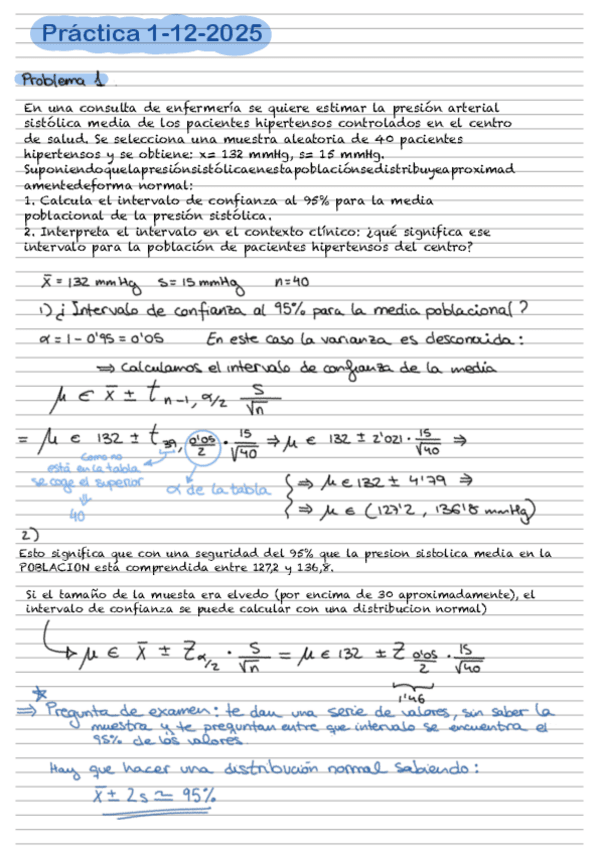 Práctica 1-12-2025
Problema 1
En una consulta de enfermería se quiere estimar la presión arterial
sistólica media de los pacientes hipertensos controlados en el centro
de salud. Se selecciona una muestra aleatoria de 40 pacientes
hipertensos y se obtiene: x= 132 mmHg, s= 15 mmHg.
Suponiendoquelapresiónsistólicaenestapoblaciónsedistribuyeaproximad
amentedeforma normal:
1. Calcula el intervalo de confianza al 95% para la media
poblacional de la presión sistólica.
2. Interpreta el intervalo en el contexto clínico: ¿qué significa ese
intervalo para la población de pacientes hipertensos del centro?
x̄ = 132 mmHg s = 15 mmHg n = 40
1) ¿ Intervalo de confianza al 95% para la media poblacional ?
α = 1 - 0'95 = 0'05 En este caso la varianza es desconocida :
⇒ Calculamos el intervalo de confianza de la media
μ ∈ x̄ ± t n-1, α/2 S/√n
= μ ∈ 132 ± t 39, 0'05/2 · 15/√40 ⇒ μ ∈ 132 ± 2'021 · 15/√40 ⇒
como no
está en la tabla
se coge el superior
⇓
40
α de la tabla
⇒ μ ∈ 132 ± 4'79 ⇒
⇒ μ ∈ (127'2 , 136'8 mmHg)
2)
Esto significa que con una seguridad del 95% que la presion sistolica media en la
POBLACION está comprendida entre 127,2 y 136,8.
Si el tamaño de la muesta era elvedo (por encima de 30 aproximadamente), el
intervalo de confianza se puede calcular con una distribucion normal)
μ ∈ x̄ ± Z α/2 · S/√n = μ ∈ 132 ± Z 0'05/2 · 15/√40
1'46
⇒ Pregunta de examen : te dan una serie de valores, sin saber la
muestra y te preguntan entre que intervalo se encuentra el
95% de los valores.
Hay que hacer una distribución normal sabiendo :
x̄ ± 2s ≃ 95%